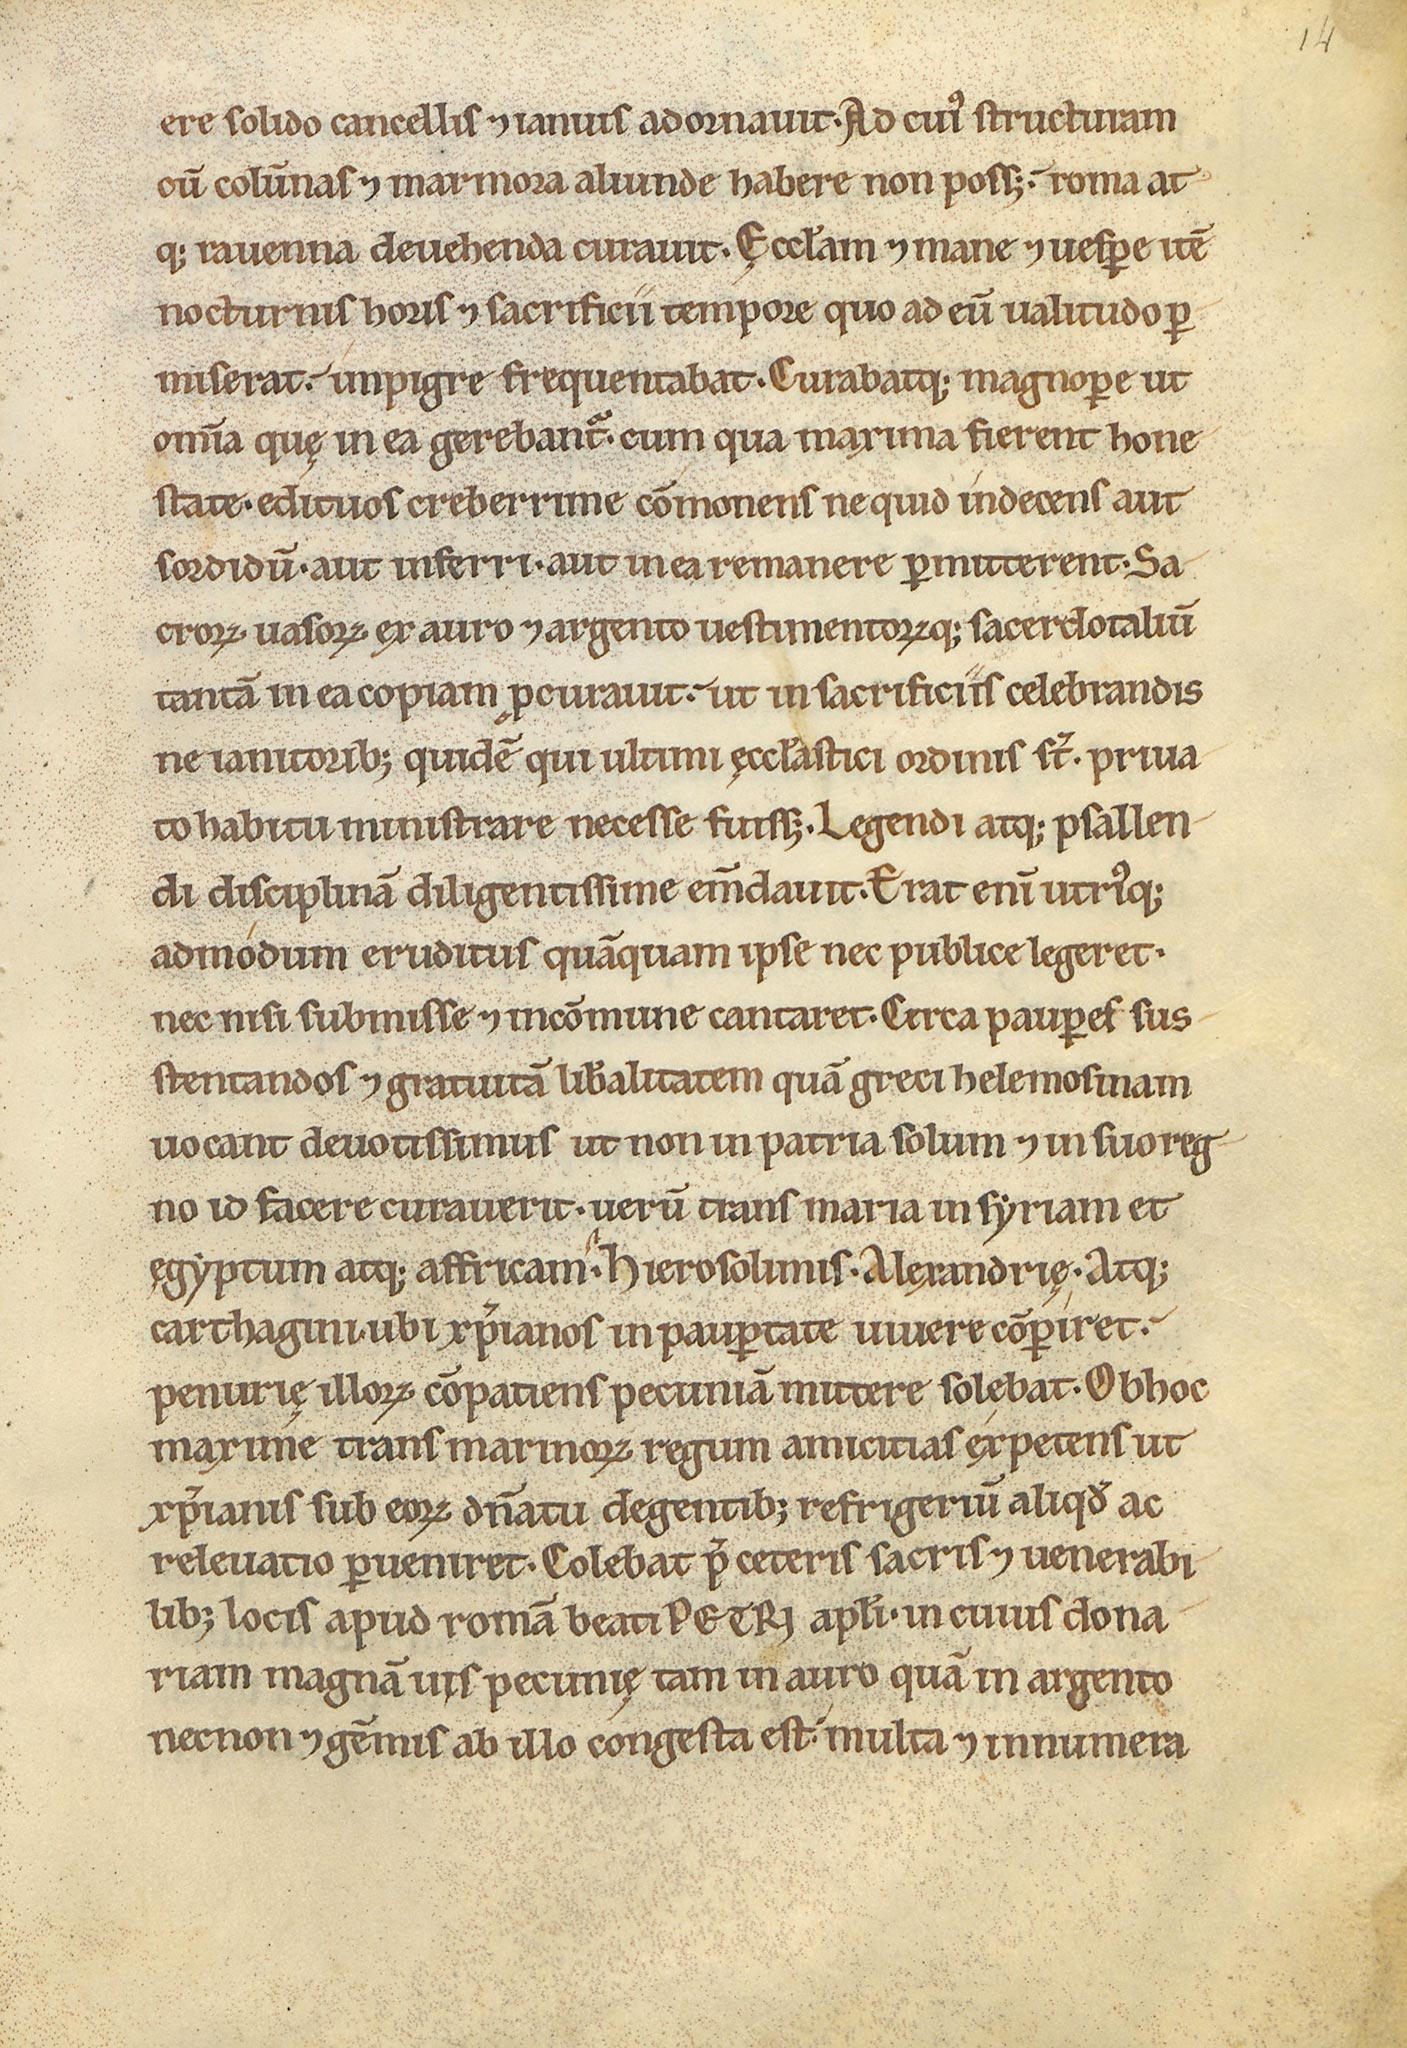 14
ere solido cancellis ⁊ ianuis adornauit. Ad cuiꝰ structuram
cū colūnas ⁊ marmora aliunde habere non possꝫ. roma at
qꝫ rauenna deuehenda curauit. Ęccłam ⁊ mane ⁊ uesꝑe itē
nocturnis horis ⁊ sacrificii tempore quo ad eū ualitudo ꝑ
miserat. inpigre frequentabat. Curabatqꝫ magnoꝑe ut
om̄ia quę in ea gerebant᷑. cum qua maxima fierent hone
state. edituos creberrime cōmonens ne quid indecens aut
sordidū. aut inferri. aut in ea remanere ꝑmitterent. Sa
croꝝ uasoꝝ ex auro ⁊ argento uestimentoꝝqꝫ sacerdotaliū
tantā in ea copiam ꝓcurauit. ut in sacrificiis celebrandis
ne ianitoribꝫ quidē qui ultimi ęccłastici ordinis st᷑. priua
to habitu ministrare necesse fuissꝫ. Legendi atqꝫ psallen
di disciplinā diligentissime em̄dauit. Erat enī utriꝰqꝫ
admodum eruditus quāquam ipse nec publice legeret.
nec nisi submisse ⁊ in cōmune cantaret. Circa pauꝑes sus
stentandos ⁊ gratuitā lib̄alitatem quā greci helemosinam
uocant deuotissimus ut non in patria solum ⁊ in suo reg
no id facere curauerit. uerū trans maria in syriam et
ęgyptum atqꝫ affricam. hierosolimis. Alexandrię. Atqꝫ
carthagini. ubi xp̄ianos in pauꝑtate uiuere cōꝑiret.
penurię illoꝝ cōpatiens pecuniā mittere solebat. Ob hoc
maxime trans marinoꝝ regum amicitias expetens ut
xp̄ianis sub eoꝝ dn̄atu degentibꝫ refrigeriū aliqd̄ ac
releuatio ꝑueniret. Colebat p̄ ceteris sacris ⁊ uenerabi
libꝫ locis apud romā beati PETRI apłi. in cuius dona
riam magnā uis pecunię tam in auro quā in argento
necnon ⁊ gēmis ab illo congesta est. multa ⁊ innumera